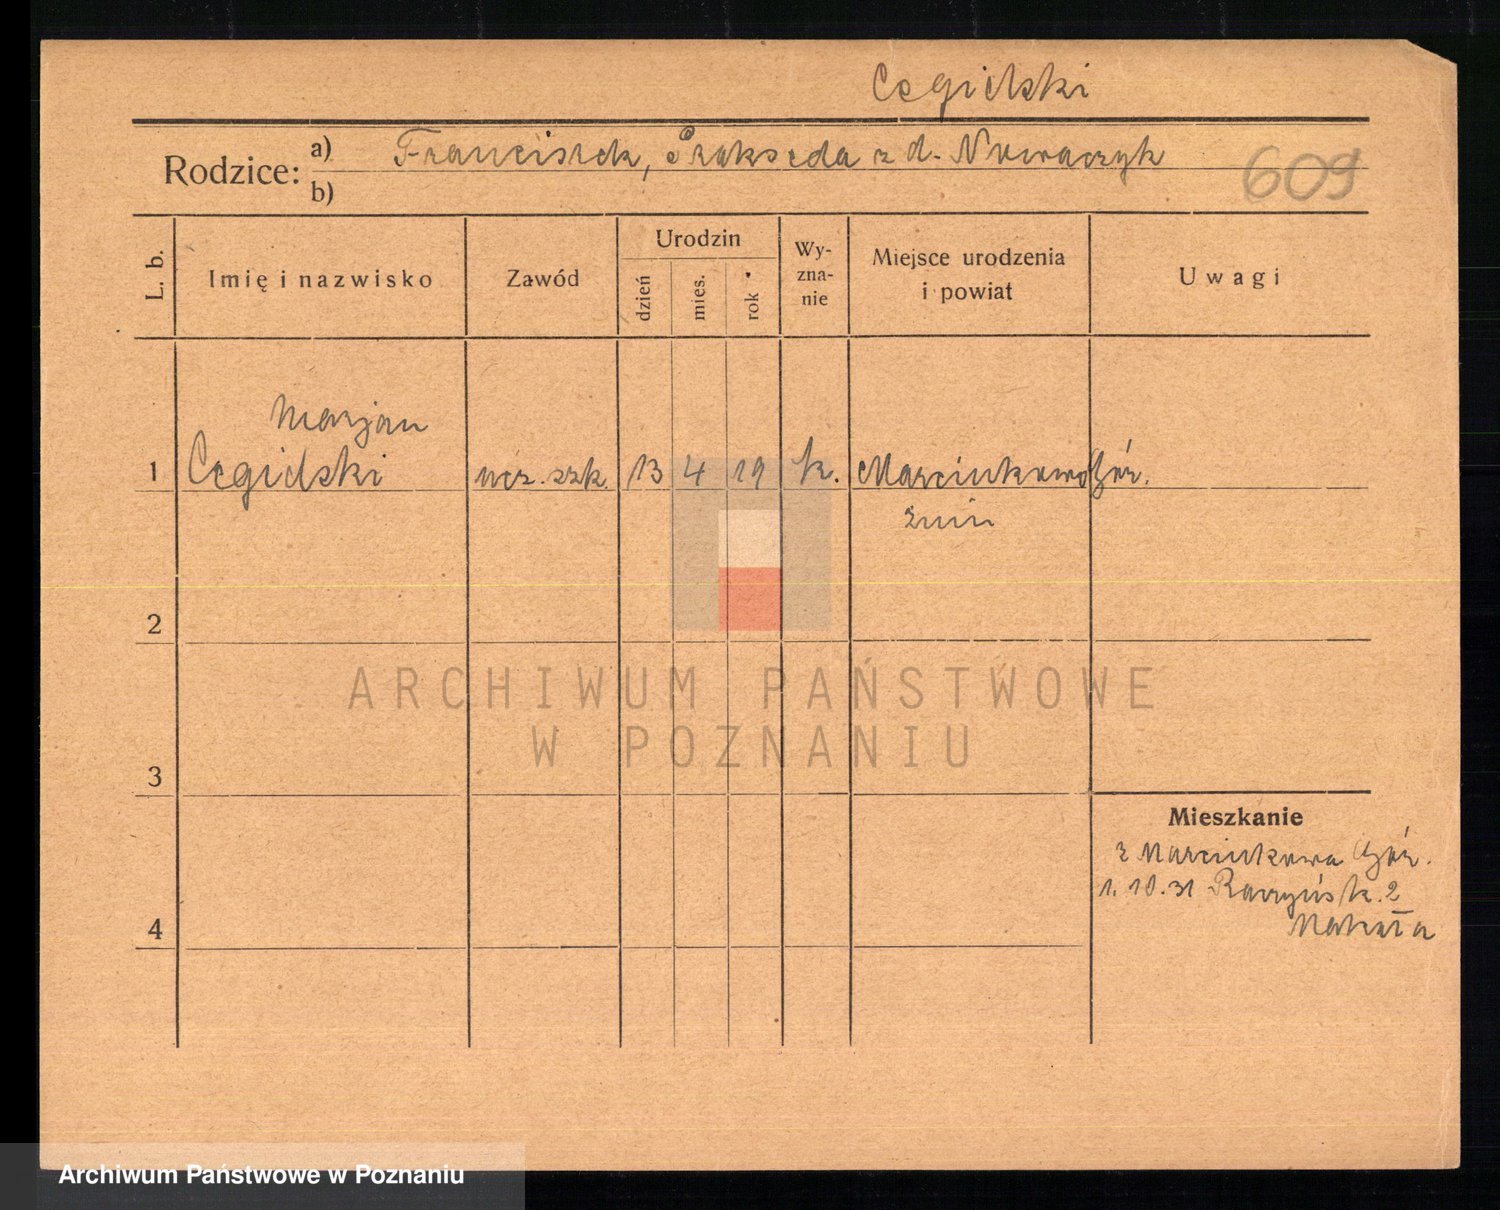 Cegielski
Rodzice: a) Franciszek, Prakseda z d. Nowaczyk
b)
609
L. b. Imię i nazwisko Zawód Urodzin dzień mies. rok Wy-zna-nie Miejsce urodzenia i powiat Uwagi
Marjan
1 Cegielski ucz. szk. 13 4 19 k. Marcinkowo Gór.
Żnin
2
ARCHIWUM PAŃSTWOWE
W POZNANIU
3
Mieszkanie
z Marcinkowa Gór.
1.10.31 Raczyńsk. 2
4
Archiwum Państwowe w Poznaniu